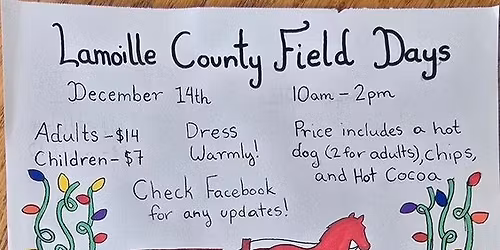 Lamoille County Field Days
December 14th 10am - 2pm
Adults - $14
Children - $7
Dress
Warmly!
Price includes a hot
dog (2 for adults), chips,
and Hot Cocoa
Check Facebook
for any updates!